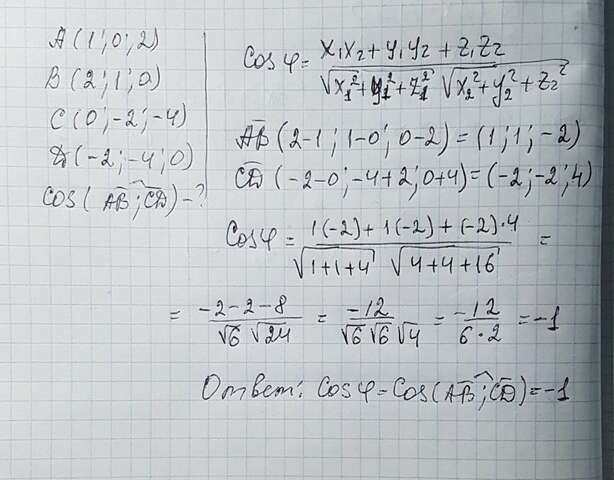 A(1;0;2)
B(2;1;0)
C(0;-2;-4)
D(-2;-4;0)
cos(AB;CD)-?
Cos φ = (x₁x₂+y₁y₂+z₁z₂)/(√(x₁²+y₁²+z₁²) √(x₂²+y₂²+z₂²))
AB(2-1; 1-0; 0-2)=(1; 1; -2)
CD(-2-0; -4+2; 0+4)=(-2;-2;4)
Cos φ = (1(-2)+1(-2)+(-2)·4)/(√(1+1+4) √(4+4+16)) =
= (-2-2-8)/(√6 √24) = -12/(√6 √6 √4) = -12/(6·2) = -1
Ответ: Cos φ = Cos(AB;CD)=-1